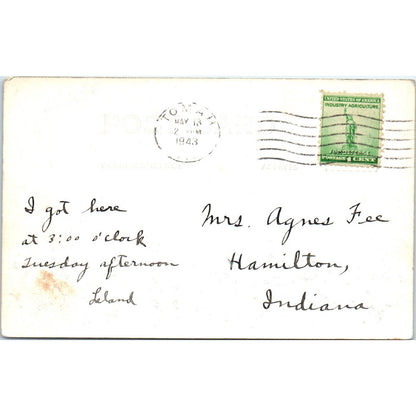 TOMAH
MAY 13
1943
UNITED STATES OF AMERICA
INDUSTRY AGRICULTURE
FOR DEFENSE
POSTAGE 1 CENT
I got here
at 3:00 o'clock
Tuesday afternoon
Leland
Mrs. Agnes Fee
Hamilton,
Indiana